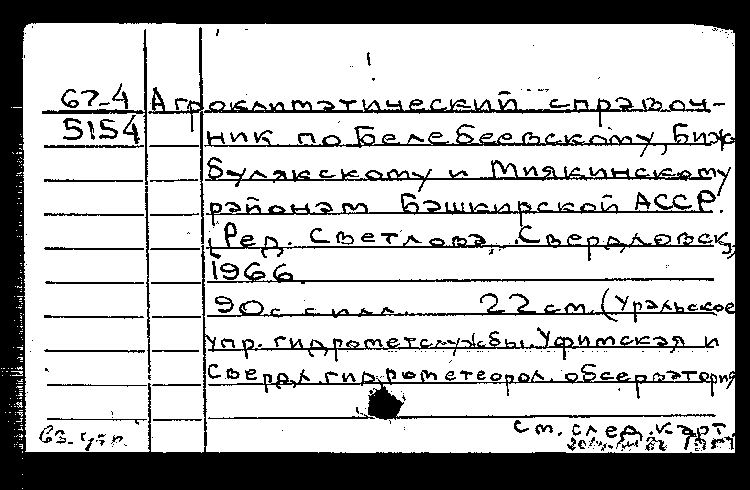 67-4 Агроклиматический справоч-
5154 ник по Белебеевскому, Биж
булякскому и Миякинскому
районам Башкирской АССР.
[Ред. Светлова, Свердловск,
1966.
90 с с илл. 22 см. (Уральское
упр. гидрометслужбы. Уфимская и
Свердл. гидрометеорол. обсерватория
см. след. карт.